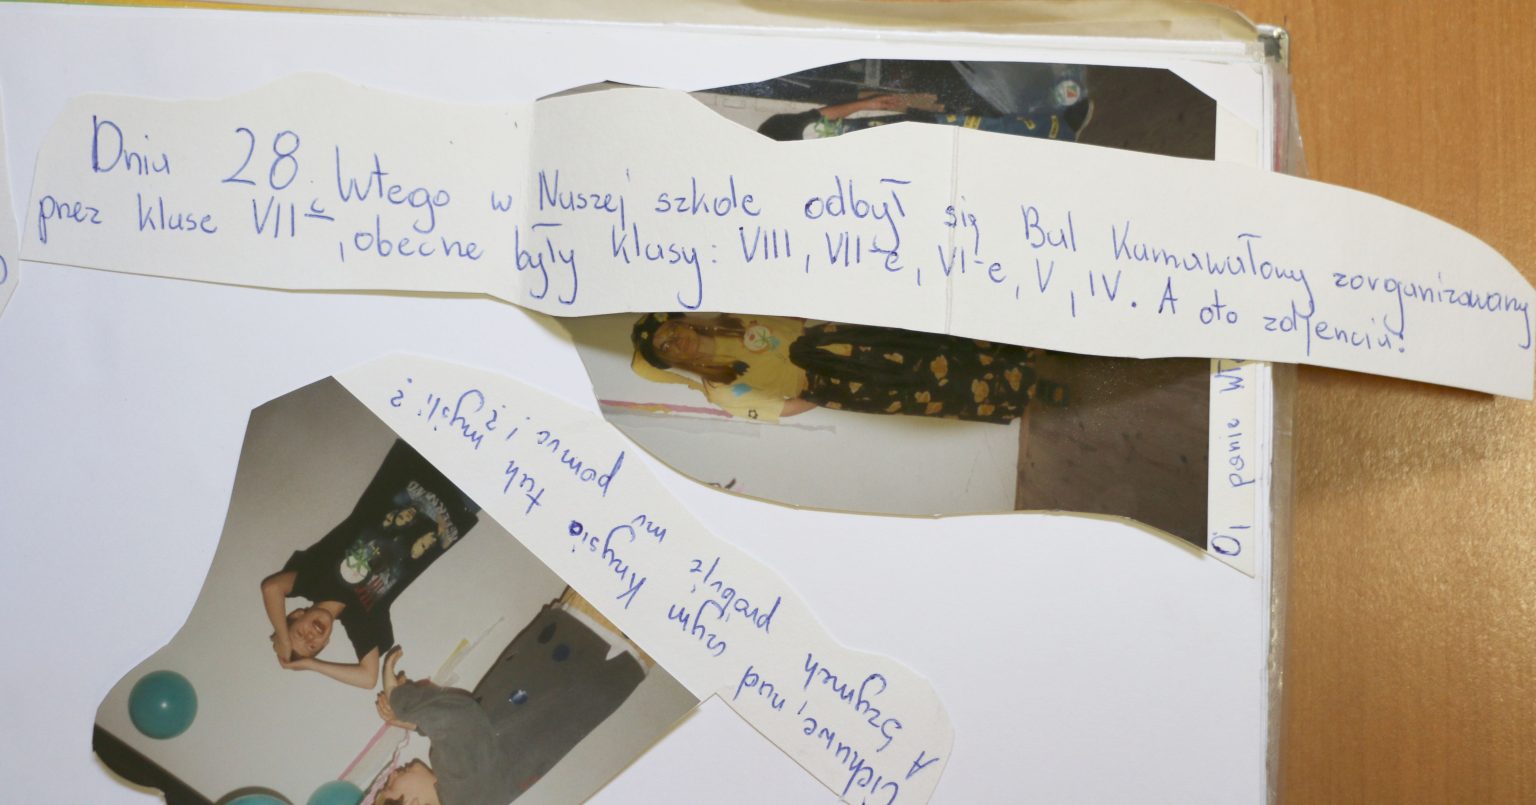 Dnia 28 lutego w Naszej szkole odbył się Bal Karnawałowy zorganizowany
przez klase VII c, obecne były klasy: VIII, VII-c, VI-e, V, IV. A oto zdjencia:
Oj panie
Ciekawe, nad czym Krzysio tak myśli?
A Szymek próbuje mu pomuc